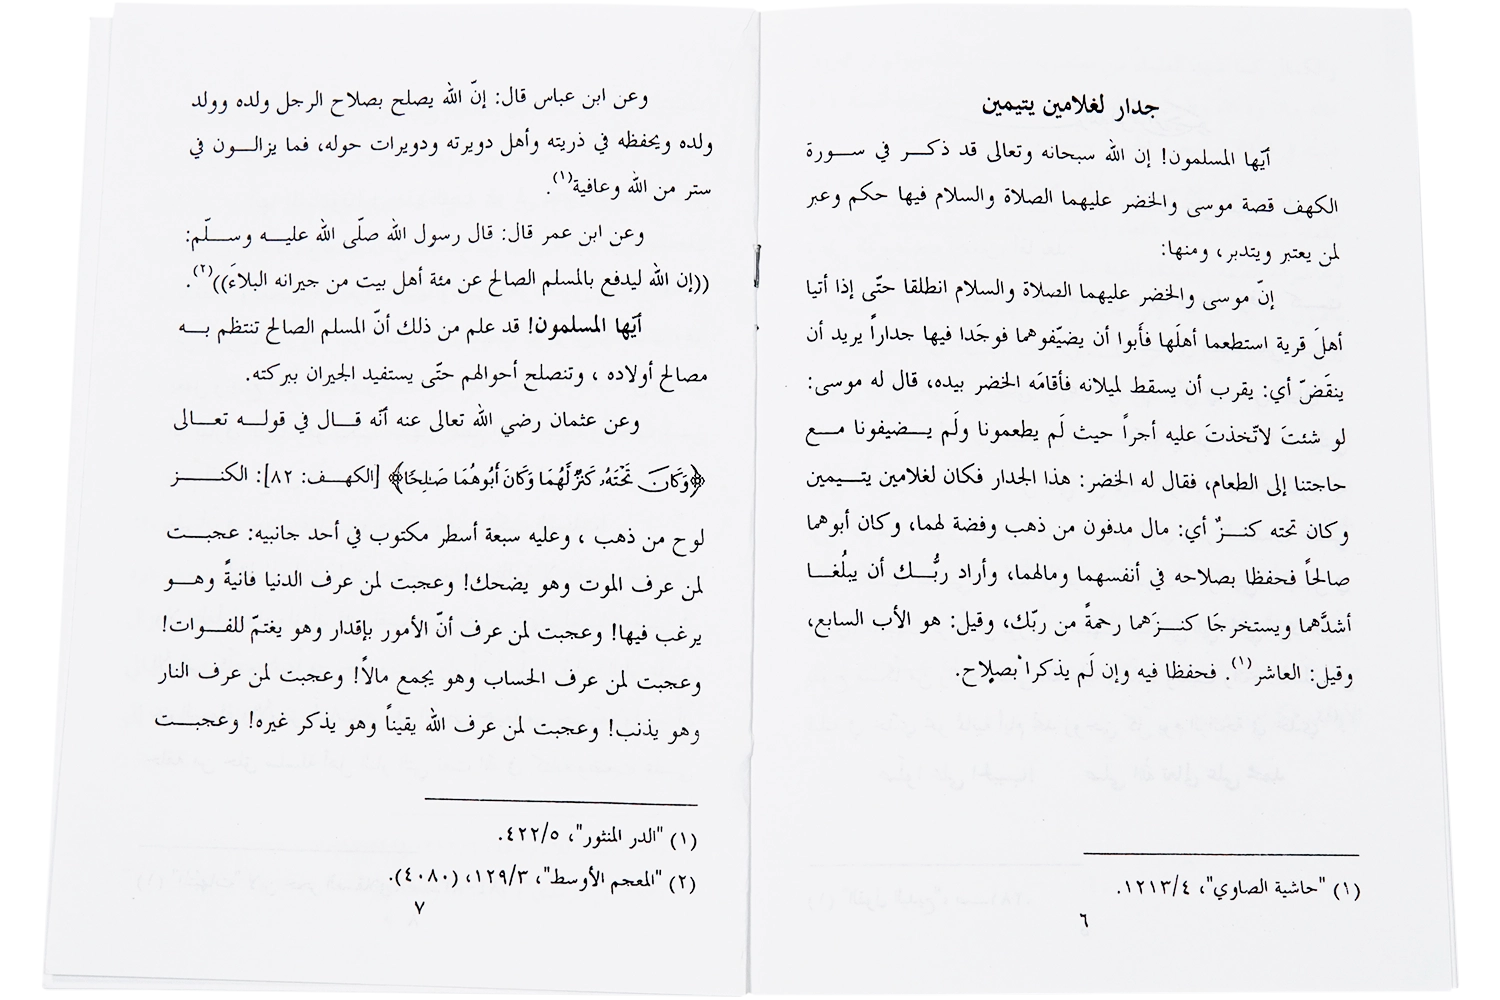 جدار لغلامين يتيمين
أيّها المسلمون! إن الله سبحانه وتعالى قد ذكر في سورة
الكهف قصة موسى والخضر عليهما الصلاة والسلام فيها حكم وعبر
لمن يعتبر ويتدبر، ومنها:
إنّ موسى والخضر عليهما الصلاة والسلام انطلقا حتّى إذا أتيا
أهلَ قرية استطعما أهلَها فأَبوا أن يضيّفوهما فوجَدا فيها جداراً يريد أن
ينقَضّ أي: يقرب أن يسقط لميلانه فأقامَه الخضر بيده، قال له موسى:
لو شئتَ لاتّخذتَ عليه أجراً حيث لَم يطعمونا ولَم يضيفونا مع
حاجتنا إلى الطعام، فقال له الخضر: هذا الجدار فكان لغلامين يتيمين
وكان تحته كنزٌ أي: مال مدفون من ذهب وفضة لهما، وكان أبوهما
صالحاً فحفظا بصلاحه في أنفسهما ومالهما، وأراد ربُّك أن يبلُغا
أشدَّهما ويستخرجَا كنزَهما رحمةً من ربّك، وقيل: هو الأب السابع،
وقيل: العاشر(١). فحفظا فيه وإن لَم يذكرا بصلاح.
(١) "حاشية الصاوي"، ١٢١٣/٤.
٦
وعن ابن عباس قال: إنّ الله يصلح بصلاح الرجل ولده وولد
ولده ويحفظه في ذريته وأهل دويرته ودويرات حوله، فما يزالون في
ستر من الله وعافية(١).
وعن ابن عمر قال: قال رسول الله صلّى الله عليه وسلّم:
((إن الله ليدفع بالمسلم الصالح عن مئة أهل بيت من جيرانه البلاءَ))(٢).
أيّها المسلمون! قد علم من ذلك أنّ المسلم الصالح تنتظم به
مصالح أولاده ، وتنصلح أحوالهم حتّى يستفيد الجيران ببركته.
وعن عثمان رضي الله تعالى عنه أنّه قال في قوله تعالى
﴿وَكَانَ تَحْتَهُۥ كَنزٌ لَّهُمَا وَكَانَ أَبُوهُمَا صَٰلِحًا﴾ [الكهف: ٨٢]: الكنز
لوح من ذهب ، وعليه سبعة أسطر مكتوب في أحد جانبيه: عجبت
لمن عرف الموت وهو يضحك! وعجبت لمن عرف الدنيا فانيةً وهو
يرغب فيها! وعجبت لمن عرف أنّ الأمور بإقدار وهو يغتمّ للفوات!
وعجبت لمن عرف الحساب وهو يجمع مالاً! وعجبت لمن عرف النار
وهو يذنب! وعجبت لمن عرف الله يقيناً وهو يذكر غيره! وعجبت
(١) "الدر المنثور"، ٤٢٢/٥.
(٢) "المعجم الأوسط"، ١٢٩/٣، (٤٠٨٠).
٧